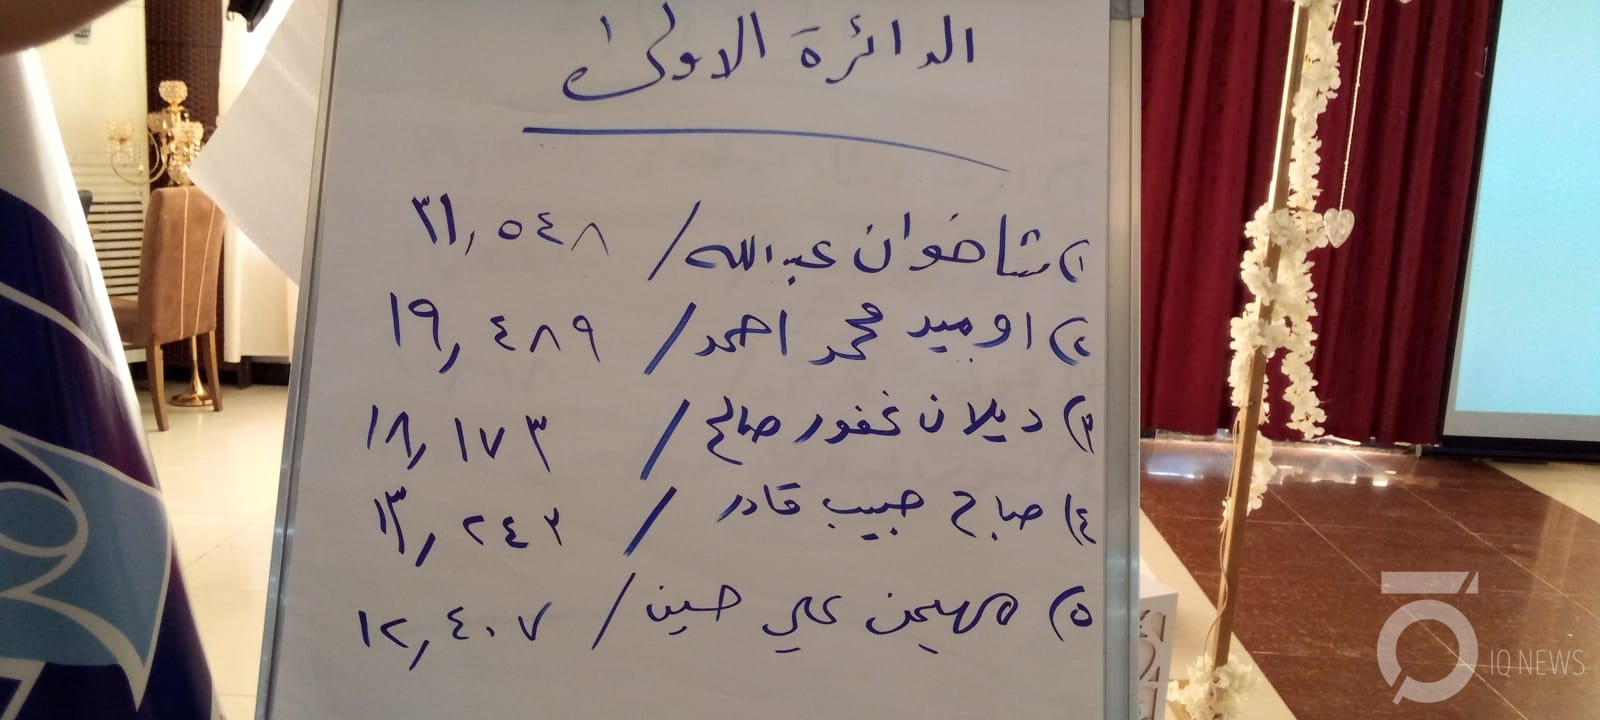 الدائرة الاولى
١) شاخوان عبدالله / ٣١,٥٤٨
٢) اوميد محمد احمد / ١٩,٤٨٩
٣) ديلان غفور صالح / ١٨,١٧٣
٤) صباح حبيب قادر / ١٣,٢٤٢
٥) مهيمن علي حسين / ١٢,٤٠٧
IQ NEWS